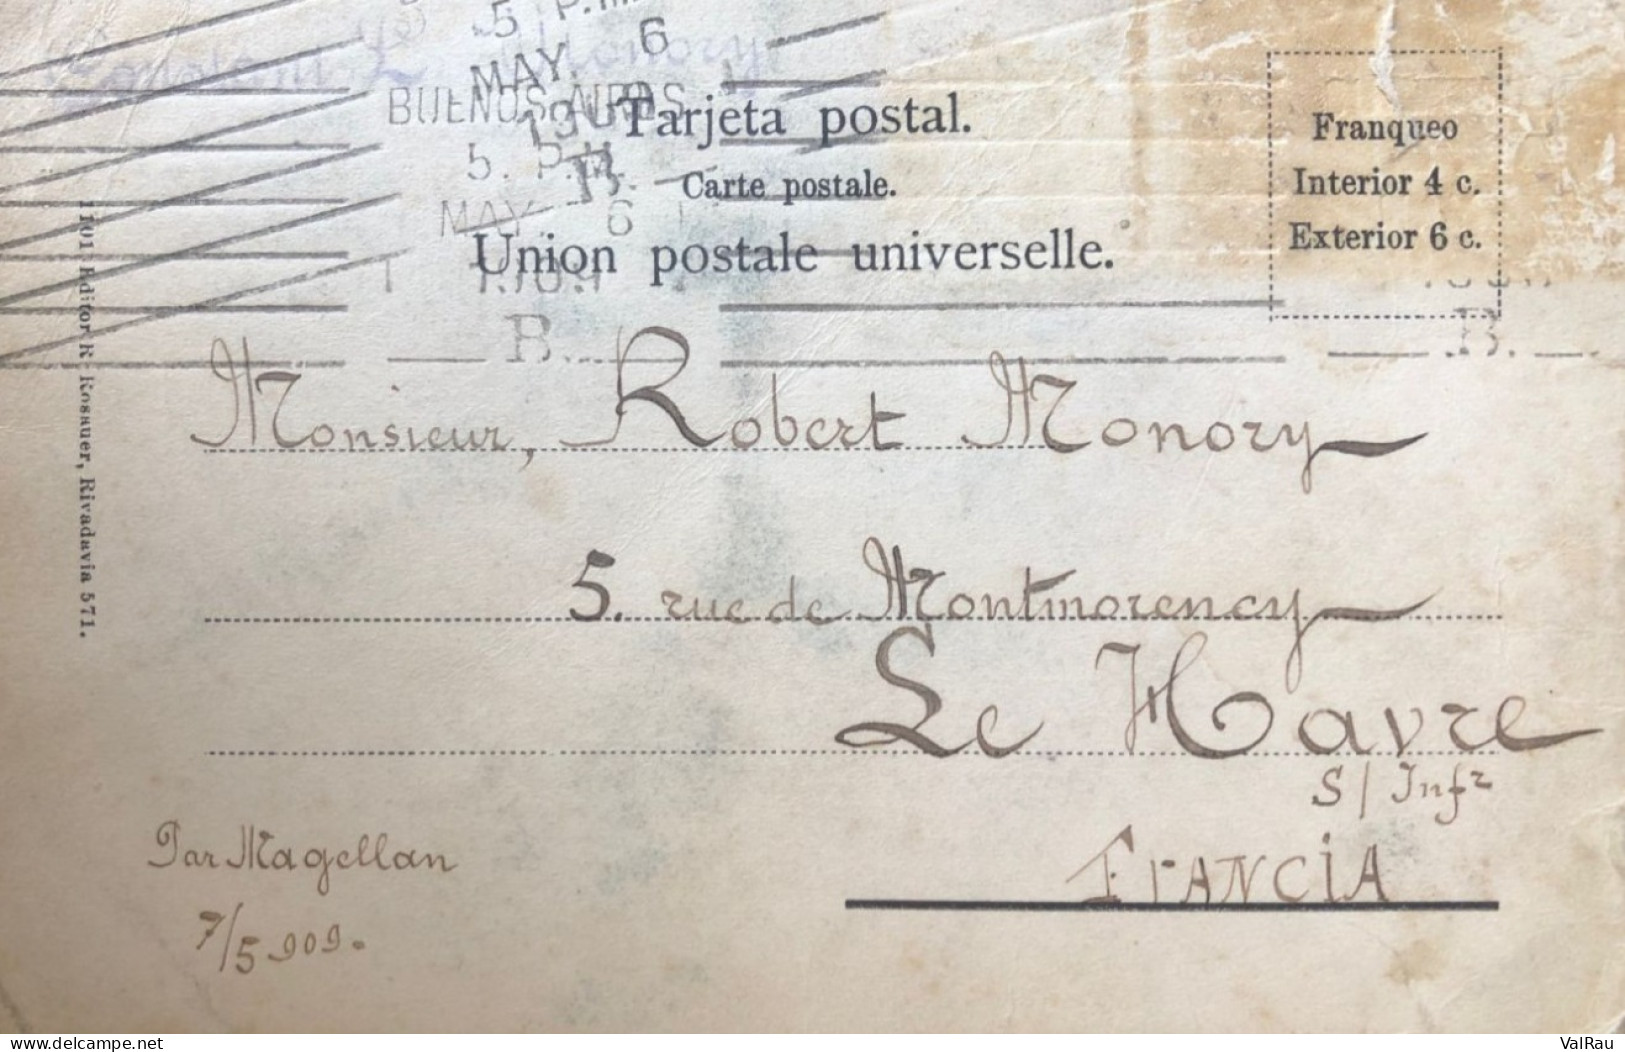 5 P.M.
MAY. 6
BUENOS AIRES
5. P.M.
MAY. 6
1909
B.
B.
B.
Tarjeta postal.
Carte postale.
Union postale universelle.
Franqueo
Interior 4 c.
Exterior 6 c.
1101. Editor R. Rosauer, Rivadavia 571.
Monsieur, Robert Monory
5. rue de Montmorency
Le Havre
S/ Infr
FranciA
Par Magellan
7/5 909.
delcampe.net
ValRau